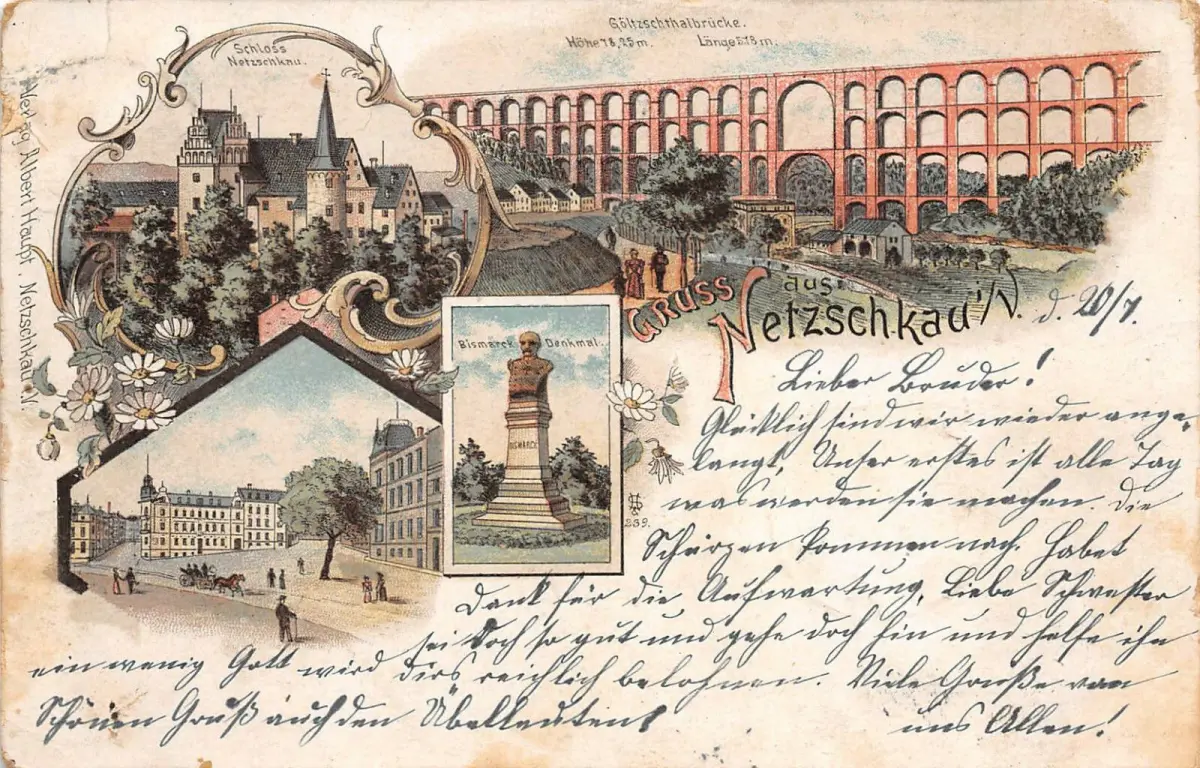 Göltzschthalbrücke.
Höhe 78,25 m. Länge 578 m.
Schloss
Netzschkau.
Verlag Albert Haupt, Netzschkau i.V.
Gruss aus
Netzschkau i/V. d. 20/7.
Bismarck Denkmal.
BISMARCK
239.
Lieber Bruder!
Glücklich sind wir wieder ange-
langt, Unser erstes ist alle Tag
was werden sie machen. Die
Schürzen kommen nach. Habet
Dank für die Aufwartung, Liebe Schwester
sei doch so gut und gehe doch hin und helfe ihn
ein wenig Gott wird dirs reichlich belohnen. Viele Grüße von
Schönen Gruß auch den uns Allen!